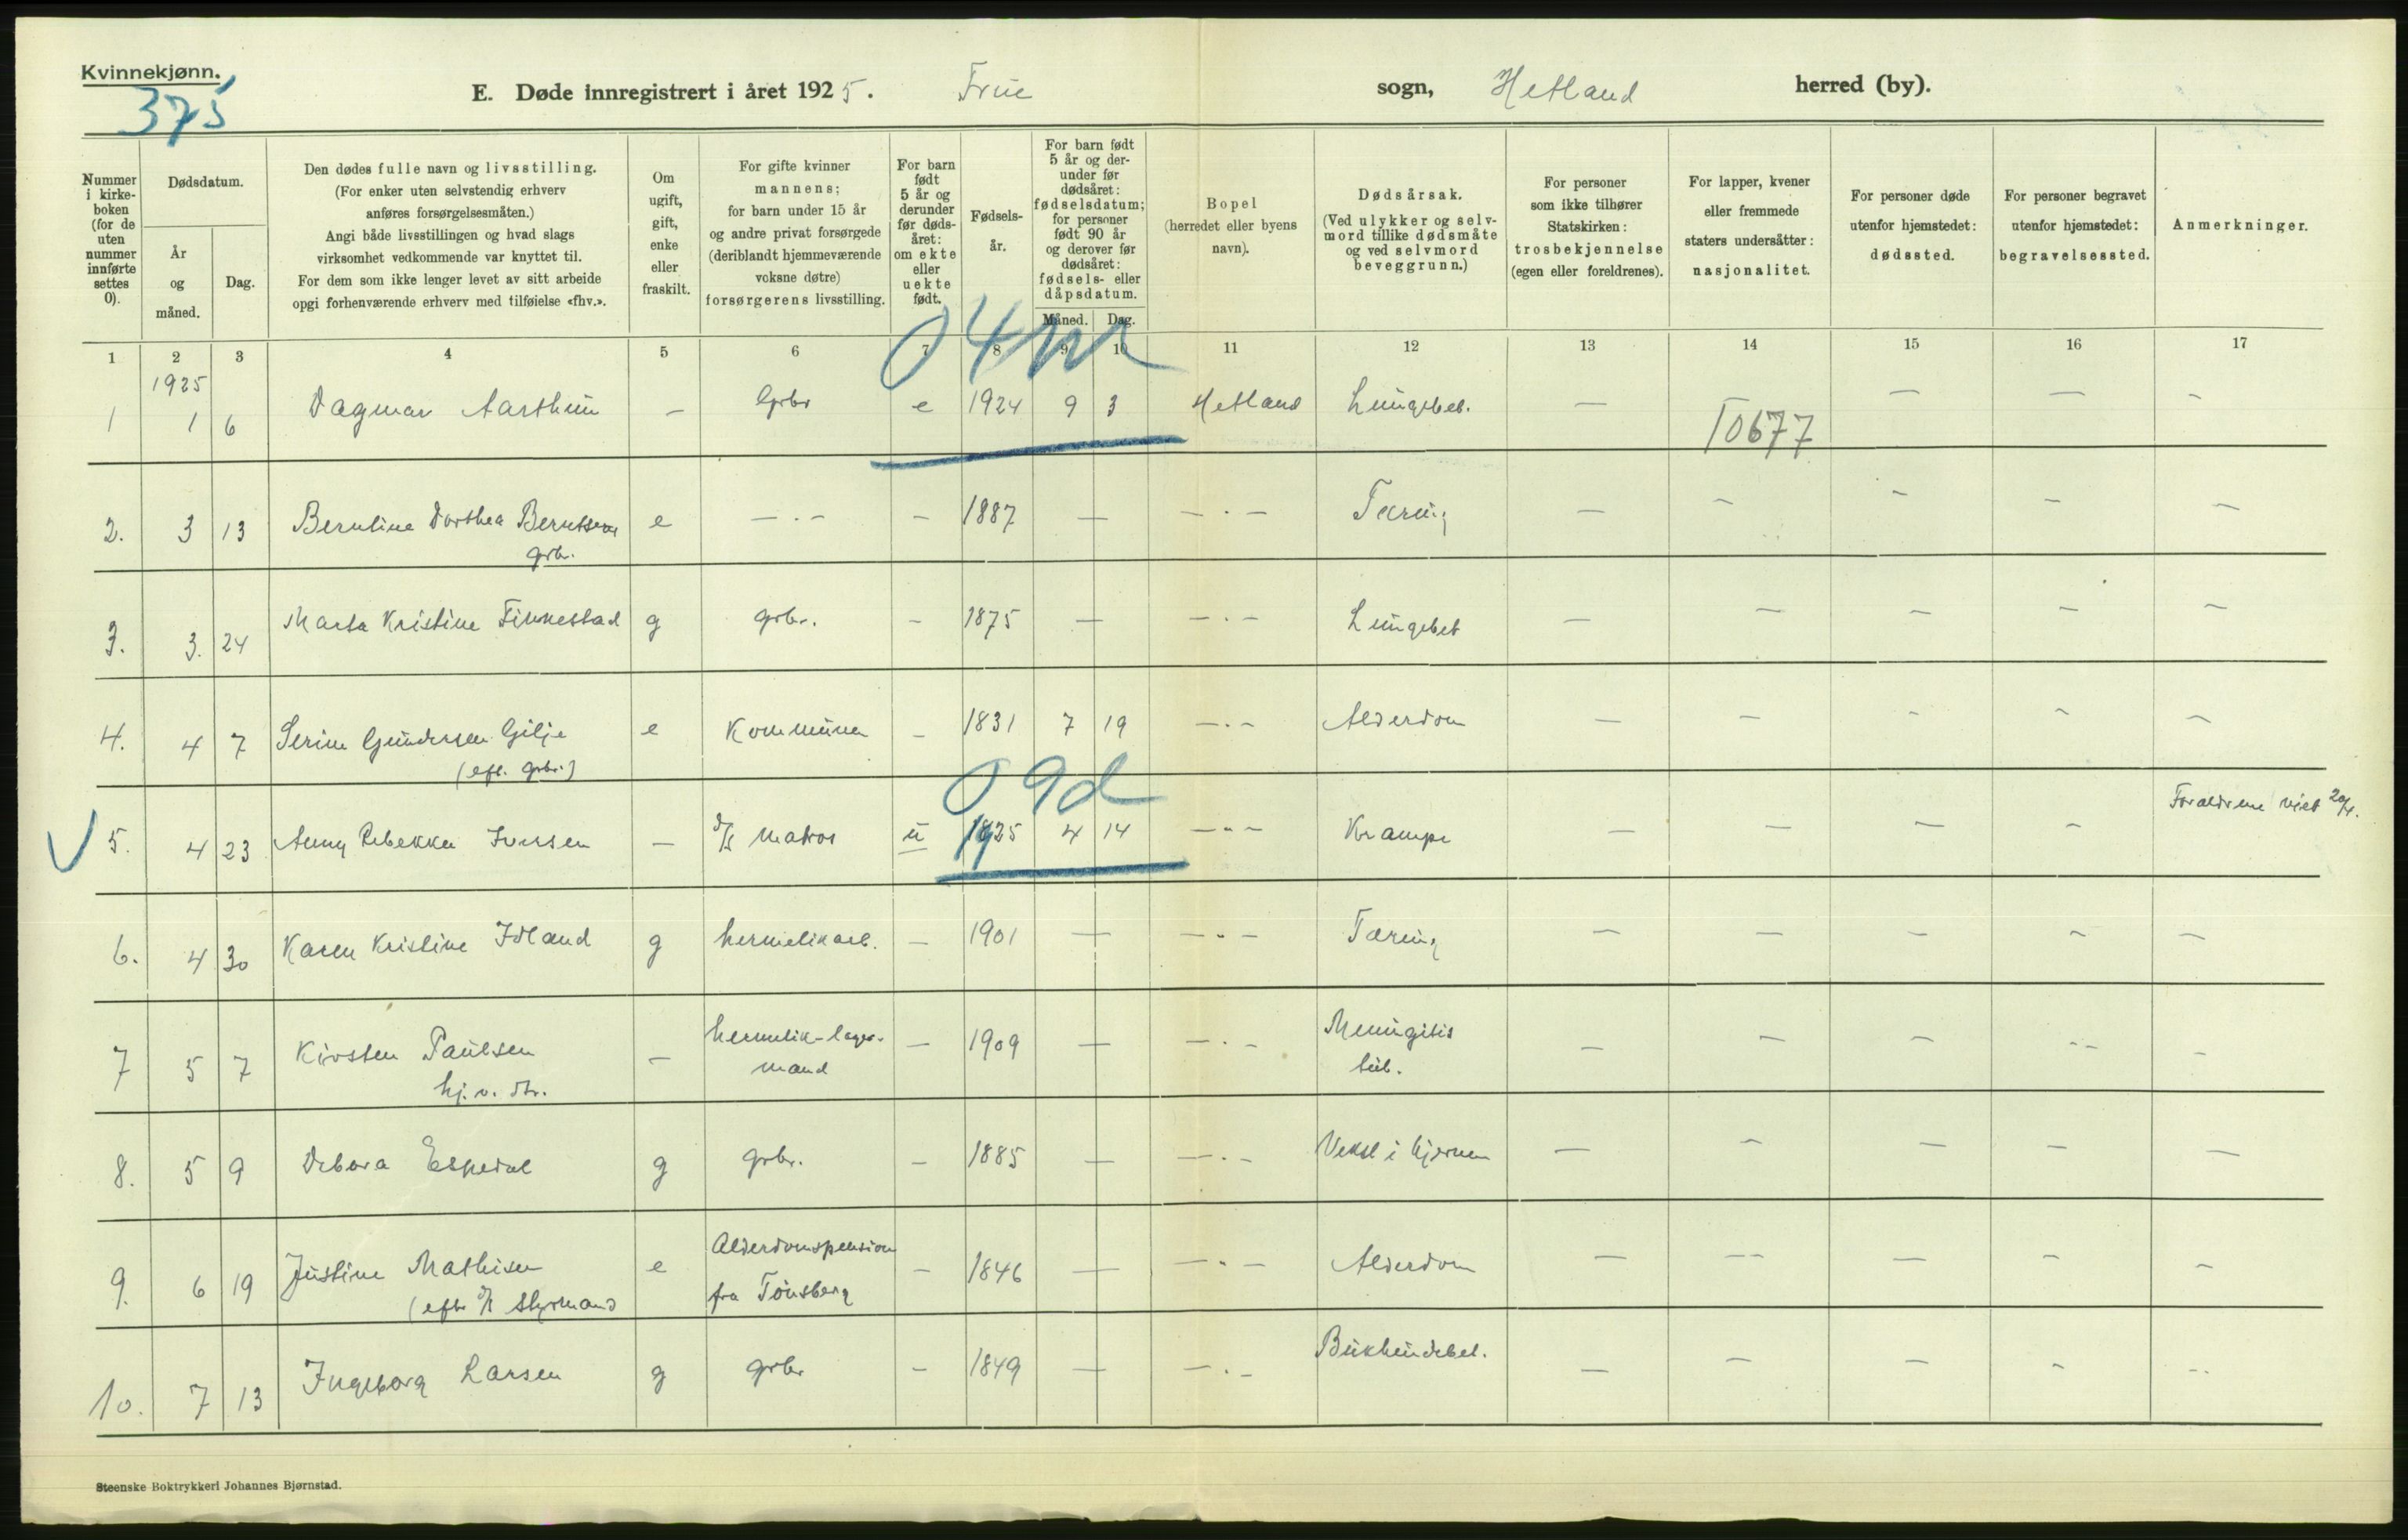 Kvinnekjønn.
375
E. Døde innregistrert i året 1925. Frue sogn, Hetland herred (by).
Nummer i kirkeboken (for de uten nummer innførte settes 0).
Dødsdatum.
År og måned.
Dag.
Den dødes fulle navn og livsstilling.
(For enker uten selvstendig erhverv
anføres forsørgelsesmåten.)
Angi både livsstillingen og hvad slags
virksomhet vedkommende var knyttet til.
For dem som ikke lenger levet av sitt arbeide
opgi forhenværende erhverv med tilføielse «fhv.».
Om ugift, gift, enke eller fraskilt.
For gifte kvinner
mannens;
for barn under 15 år
og andre privat forsørgede
(deriblandt hjemmeværende
voksne døtre)
forsørgerens livsstilling.
For barn født 5 år og derunder før dødsåret: om ekte eller uekte født.
Fødselsår.
For barn født 5 år og derunder før dødsåret: fødselsdatum; for personer født 90 år og derover før dødsåret: fødsels- eller dåpsdatum.
Måned. Dag.
Bopel
(herredet eller byens navn).
Dødsårsak.
(Ved ulykker og selvmord tillike dødsmåte og ved selvmord beveggrunn.)
For personer som ikke tilhører Statskirken: trosbekjennelse (egen eller foreldrenes).
For lapper, kvener eller fremmede staters undersåtter: nasjonalitet.
For personer døde utenfor hjemstedet: dødssted.
For personer begravet utenfor hjemstedet: begravelsessted.
Anmerkninger.
1 2 3 4 5 6 7 8 9 10 11 12 13 14 15 16 17
04m
1925
1 1 6 Dagmar Aarthun — Grbr e 1924 9 3 Hetland Lungebet. — — — —
10677
2. 3 13 Berntine Dorthea Berntsen e — . — — 1887 — — . — Tæring — — — — —
grbr.
3. 3. 24 Marta Kristine Finnestad g grbr. — 1875 — — . — Lungebet — — — — —
4. 4 7 Serine Gundersen Gilje e Kommunen — 1831 7 19 — . — Alderdom — — — — —
(eft. grbr.)
09d
5. 4 23 Anny Rebekka Iversen — d/s Matros u 1925 4 14 — " — Krampe — — — — Forældrene viet 20/4.
6. 4 30 Karen Kristine Idland g hermetikarb. — 1901 — — " — Tæring — — — — —
7 5 7 Kirsten Paulsen — hermetik-lager- — 1909 — — . — Meningitis — — — -- —
hj.v. dtr. mand tub.
8. 5 9 Debora Espedal g grbr. — 1885 — — . — Vekst i hjernen — — — — —
9. 6 19 Justine Mathisen e Alderdomspension — 1846 — — " — Alderdom — -- — — —
(eftr d/s Styrmand fra Tönsberg
10. 7 13 Ingeborg Larsen g grbr — 1849 — — . — Bukhindebet. — — — — --
Steenske Boktrykkeri Johannes Bjørnstad.